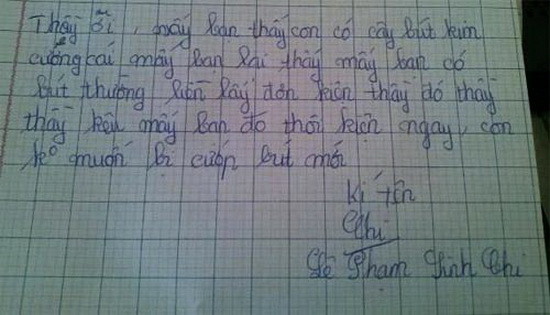 Thầy ơi, mấy bạn thấy con có cây bút kim
cương cái mấy bạn lại thấy mấy bạn có
bút thường liền lấy đơn kiện thầy đó thầy
thầy kêu mấy bạn đó thôi kiện ngay, con
ko muốn bị cướp bút mới
Kí tên
Chi
Lê Phạm Linh Chi